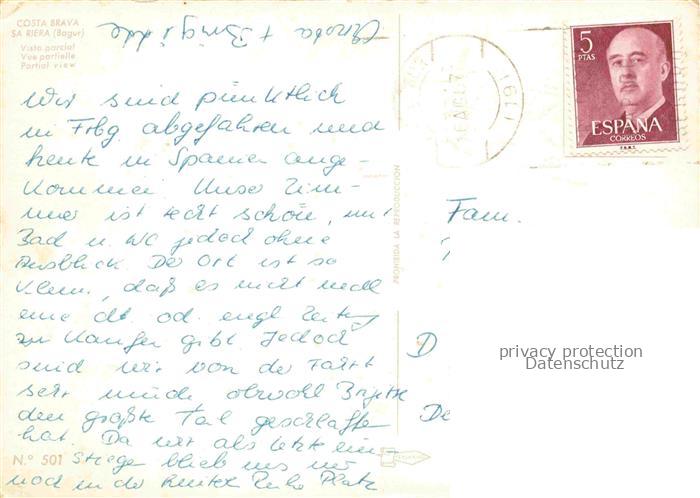 COSTA BRAVA
SA RIERA (Bagur)
Vista parcial
Vue partielle
Partial view
Wir sind pünktlich
in Frbg. abgefahren und
heute in Spanien ange-
kommen. Unser Zim-
mer ist recht schön, mit
Bad u. WC jedoch ohne
Ausblick. Der Ort ist so
klein, daß es nicht mal
eine dt. od. engl. Zeitung
zu kaufen gibt. Jedoch
sind wir von der Fahrt
sehr müde obwohl Brigitte
den größten Teil geschlafen
hat. Da wir als letzte ein-
stiegen blieb uns nur
noch in der hinteren Reihe Platz
N.º 501
PROHIBIDA LA REPRODUCCION
5
PTAS
ESPAÑA
CORREOS
F.N.M.T.
Fam.
D
De
privacy protection
Datenschutz